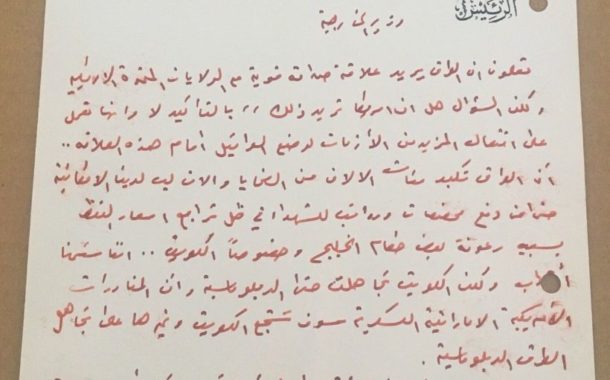 الرئيس
وزير الخارجية
تعلمون ان العراق يريد علاقة صداقة قوية مع الولايات المتحدة الامريكية
ولكن السؤال هل ان امريكا تريد ذلك ،، بالتأكيد لا وانها تعمل
على افتعال المزيد من الأزمات لوضع العراقيل امام هذه العلاقة ..
أن العراق تكبد مئات الالاف من الضحايا والان ليس لدينا الامكانية
حتى في دفع مخصصات ورواتب للشهداء في ظل تراجع اسعار النفط
بسبب رعونة بعض حكام الخليج وخصوصاً الكويت .. اننا سئمنا
ولكن الكويت تجاهلت حتى الدبلوماسية وان المناورات
الأمريكية الاماراتية العسكرية سوف تشجع الكويت وغيرها على تجاهل
الطرق الدبلوماسية .